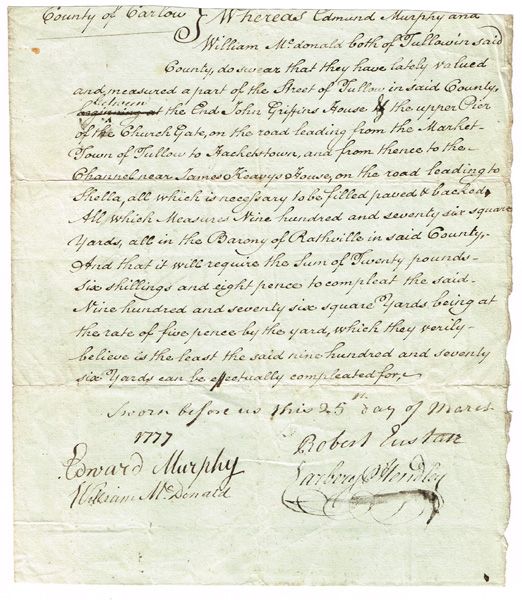 County of Carlow } Whereas Edmund Murphy and
William McDonald both of Tullow in said
County, do swear that they have lately valued
and, measured a part of the Street of Tullow in said County,
between
beginning at the End John Griffins House & the upper Pier
of the Church Gate, on the road leading from the Market-
Town of Tullow to Hacketstown, and from thence to the
Channel near James Heavys House, on the road leading to
Shella, all which is necessary to be filled paved & backed,
All which Measures Nine hundred and seventy six square
Yards, all in the Barony of Rathville in said County,-
And that it will require the Sum of Twenty pounds-
six shillings and eight pence to compleat the said-
Nine hundred and seventy six square Yards being at
the rate of five pence by the yard, which they verily-
believe is the least the said nine hundred and seventy
six Yards can be effectually compleated for,
Sworn before us this 25th day of March
1777
Robert Eustace
Edward Murphy
William McDonald
Hendley